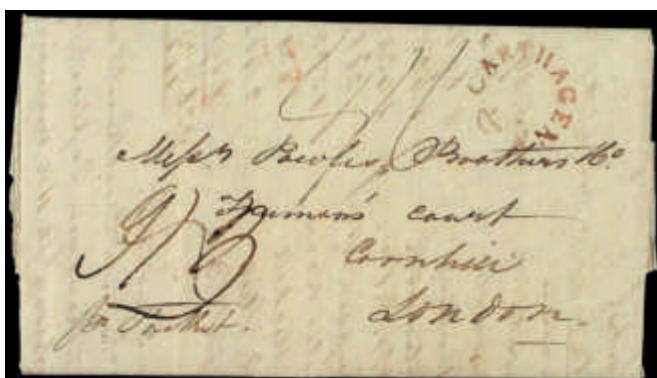 CARTHAGENA
Messrs Powles Brothers & Co.
Freeman's Court
Cornhill
London.
pr Packet.